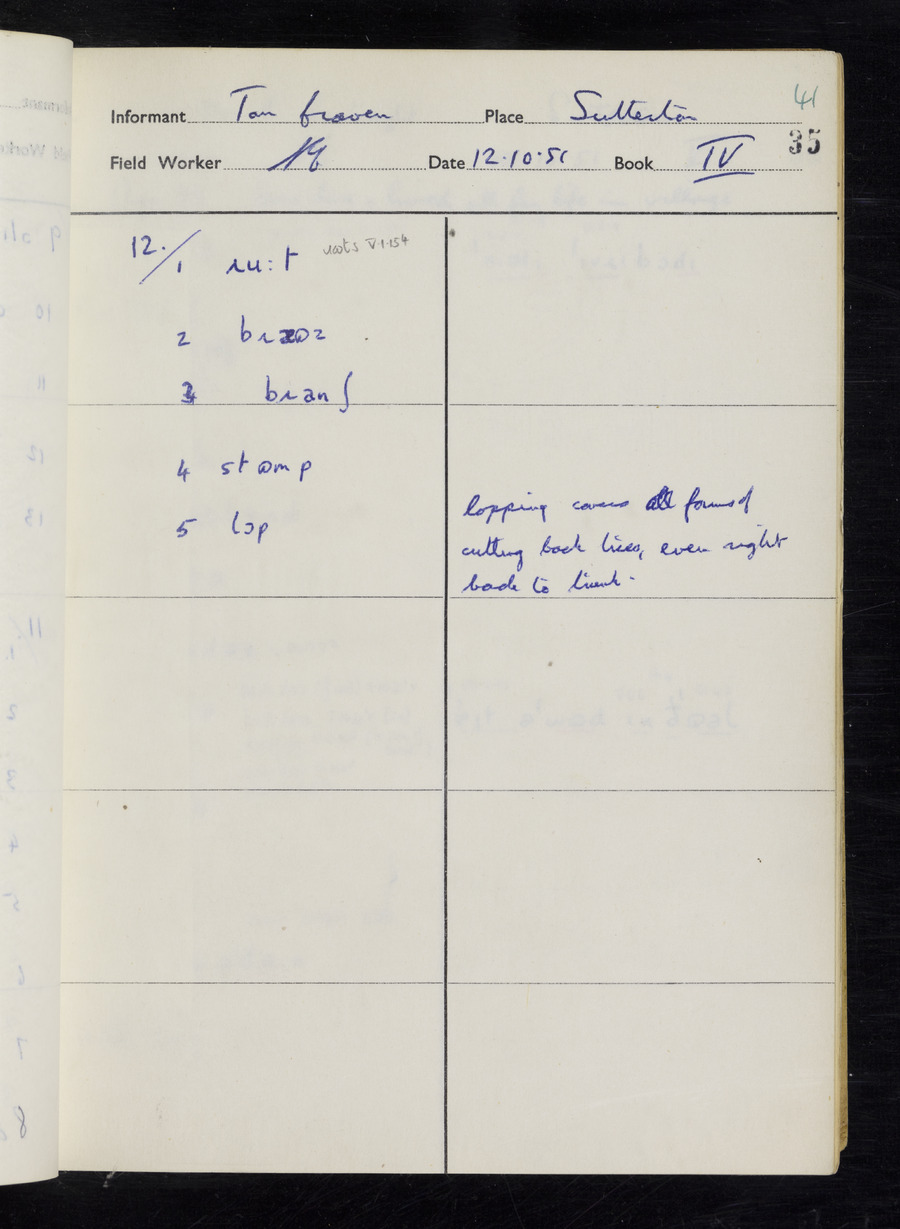 41
Informant Tom Graven Place Sutterton
35
Field Worker Date 12.10.51 Book IV
12./
1 ɹu:t roots V.1.154
2
3 bɹanʃ
4 stʊmp
5 lɔp
lopping covers all forms of
cutting back trees, even right
back to trunk.